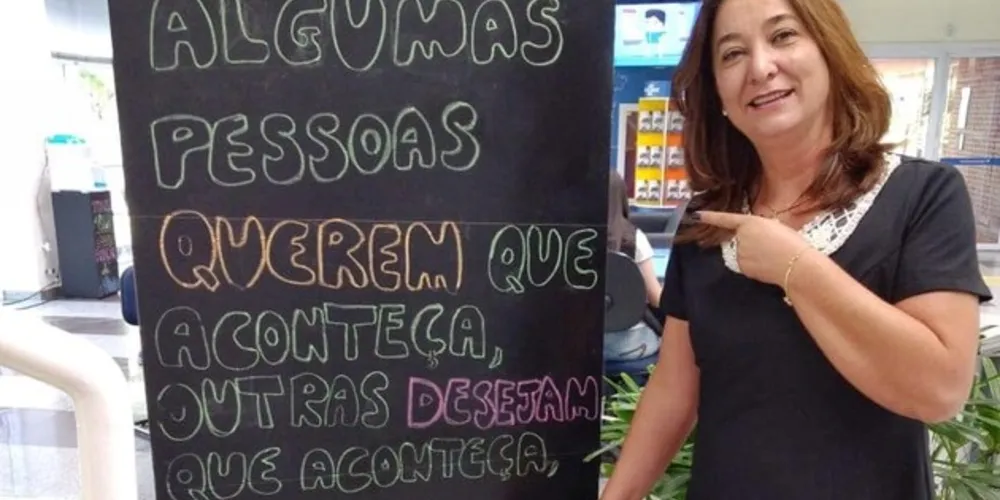 ALGUMAS
PESSOAS
QUEREM QUE
ACONTEÇA,
OUTRAS DESEJAM
QUE ACONTEÇA,